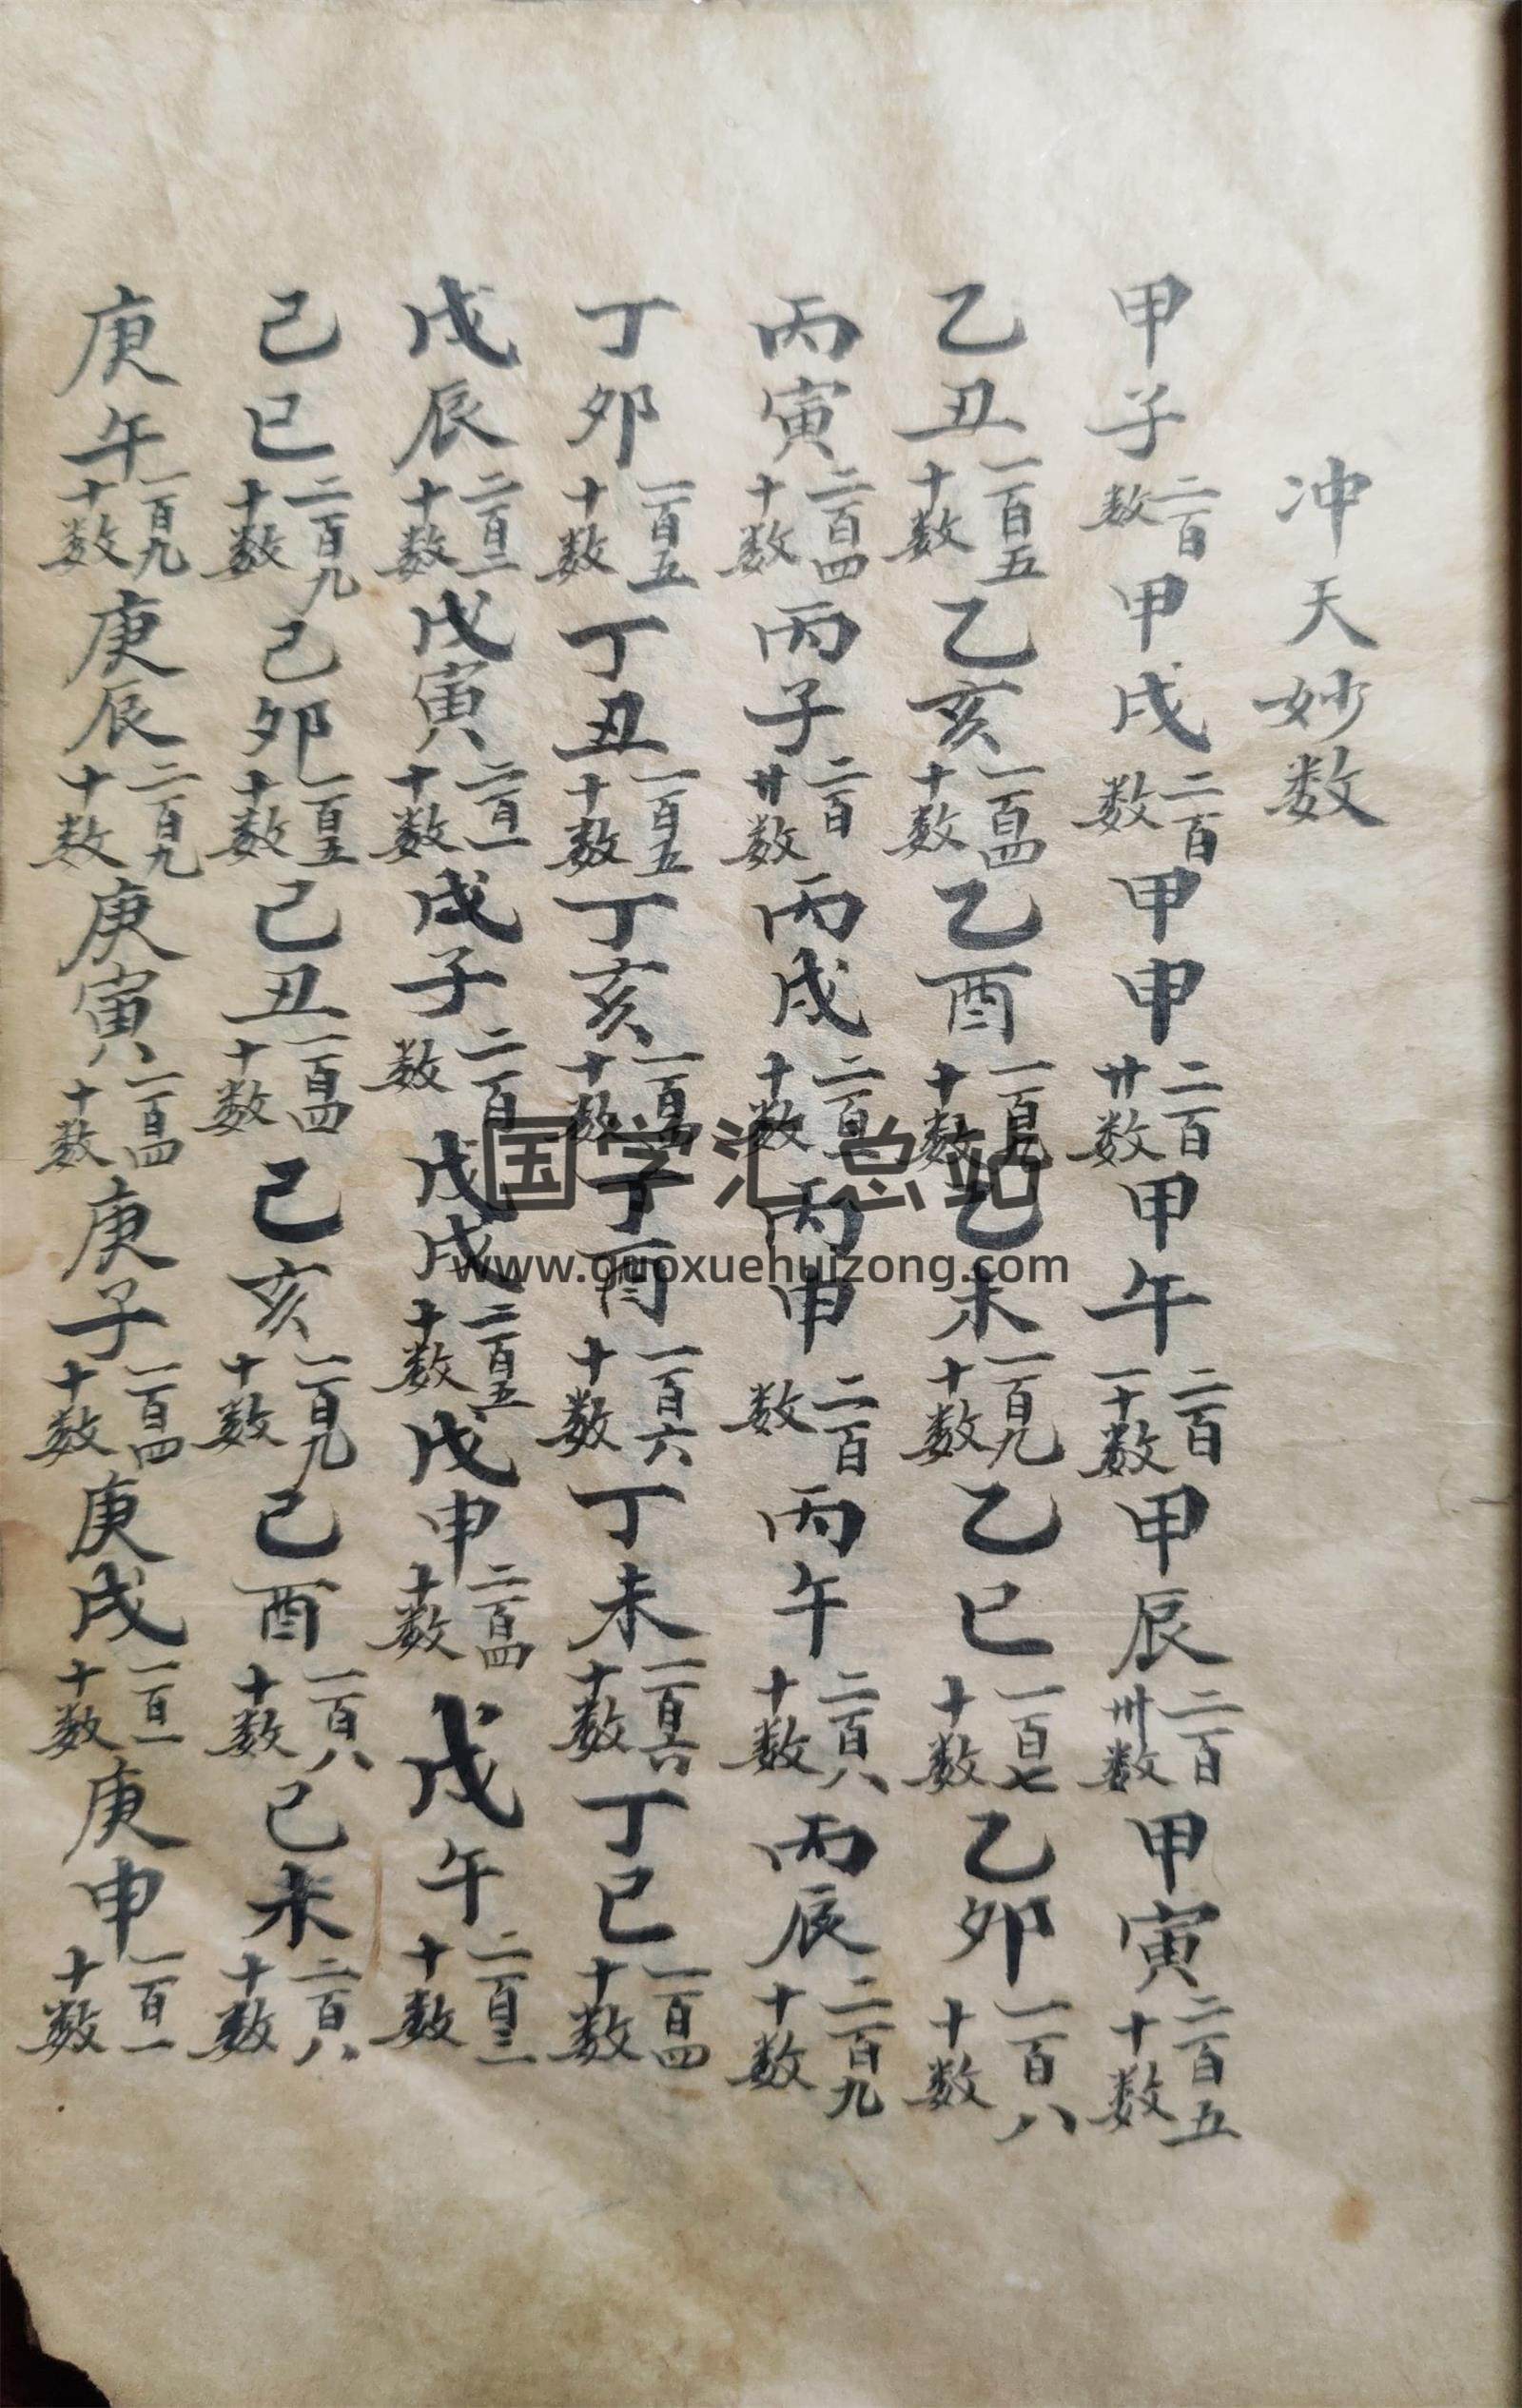 冲天妙数
甲子二百数甲戌二百数甲申二百廿数甲午二百一十数甲辰二百卅数甲寅二百五十数
乙丑一百五十数乙亥一百四十数乙酉一百九十数乙未一百九十数乙巳一百七十数乙卯一百八十数
丙寅二百四十数丙子二百廿数丙戌二百一十数丙申二百数丙午二百八十数丙辰二百九十数
丁卯一百五十数丁丑一百五十数丁亥一百十数丁酉一百六十数丁未一百六十数丁巳一百四十数
戊辰二百二十数戊寅二百一十数戊子二百数戊戌二百五十数戊申二百四十数戊午二百三十数
己巳二百九十数己卯一百五十数己丑一百四十数己亥一百九十数己酉一百八十数己未二百八十数
庚午一百九十数庚辰二百九十数庚寅一百四十数庚子一百四十数庚戌一百一十数庚申一百一十数
国学汇总站
www.guoxuehuizong.com